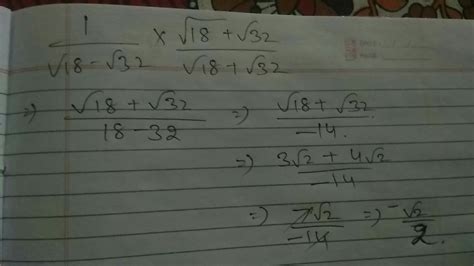 1/(√18 - √32) × (√18 + √32)/(√18 + √32)
⇒ (√18 + √32)/(18 - 32) ⇒ (√18 + √32)/(-14).
⇒ (3√2 + 4√2)/(-14)
⇒ 7√2/(-14) ⇒ -√2/2.